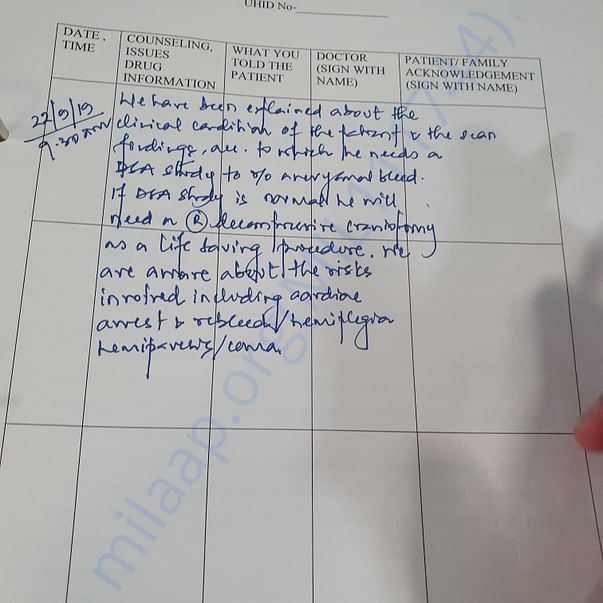 UHID No-
DATE, TIME
COUNSELING, ISSUES DRUG INFORMATION
WHAT YOU TOLD THE PATIENT
DOCTOR (SIGN WITH NAME)
PATIENT/ FAMILY ACKNOWLEDGEMENT (SIGN WITH NAME)
22/9/19
9.30 am
We have been explained about the
clinical condition of the patient & the scan
findings, acc. to which he needs a
DSA study to r/o aneurysmal bleed.
If DSA study is normal he will
need a (R) decompressive craniotomy
as a life saving procedure. We
are aware about the risks
involved including cardiac
arrest & rebleed/hemiplegia
hemiparesis/coma
milaap.org